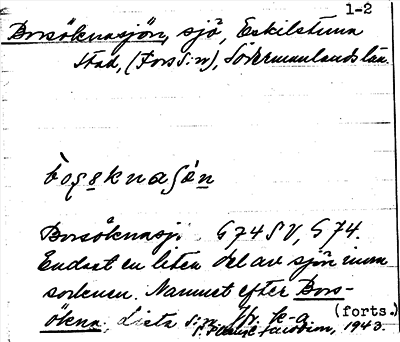 1-2
Borsöknasjön, sjö, Eskilstuna
stad, (Fors s:n), Södermanlands län.
Borsöknasj. G74SV, G74.
Endast en liten del av sjön inom
socknen. Namnet efter Bors-
ökna, Lista s:n, Hr. k-a
(forts.)
1943.